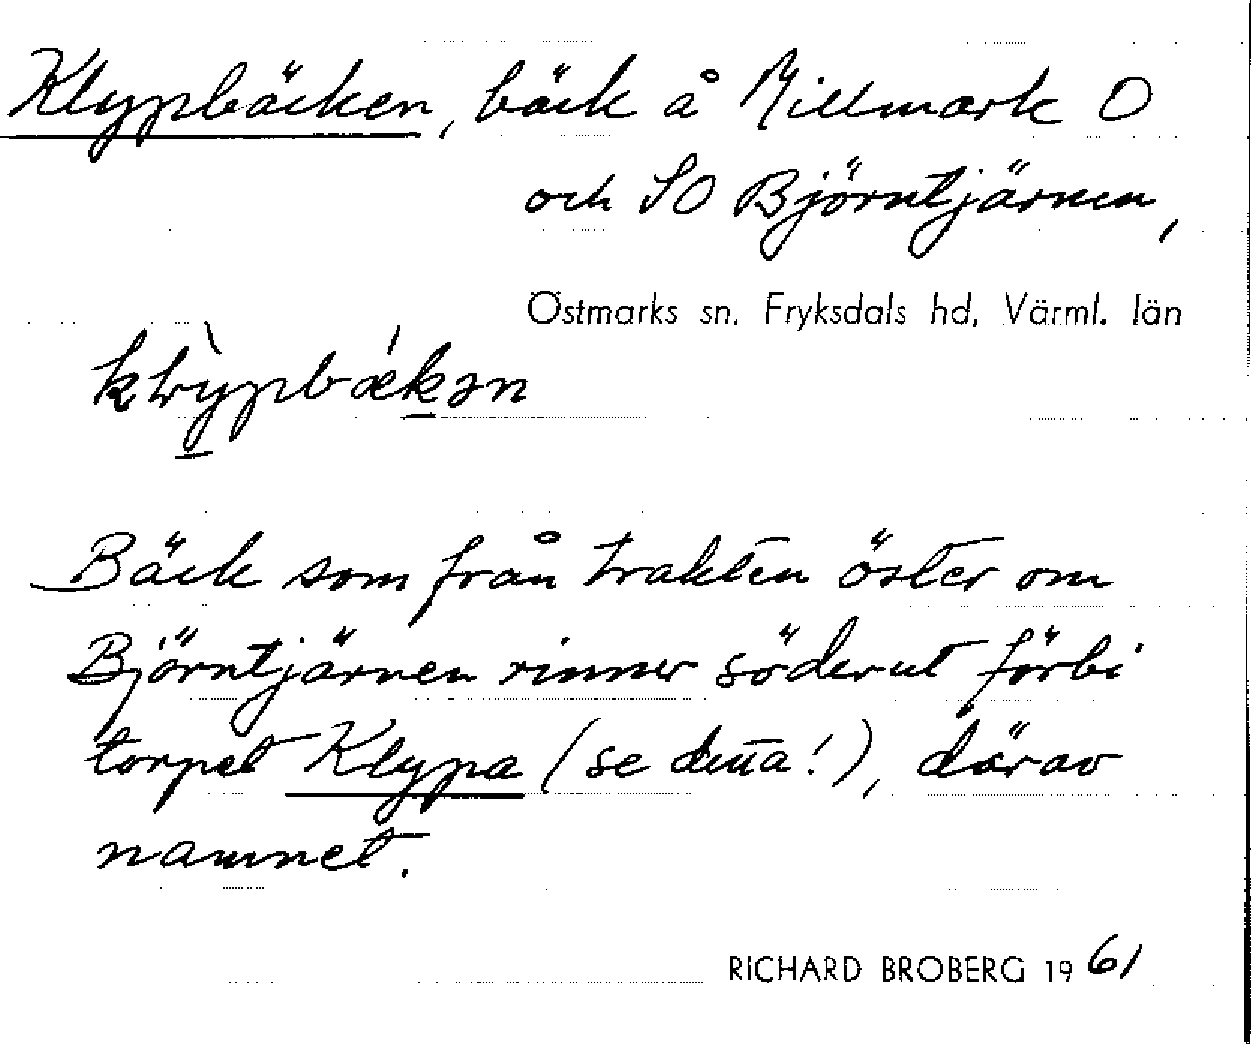 Klypbäcken, bäck å Millmark O
och SO Björntjärnen,
Östmarks sn. Fryksdals hd, Värml. län
Bäck som från trakten öster om
Björntjärnen rinner söderut förbi
torpet Klypa (se detta!), därav
namnet.
RICHARD BROBERG 1961